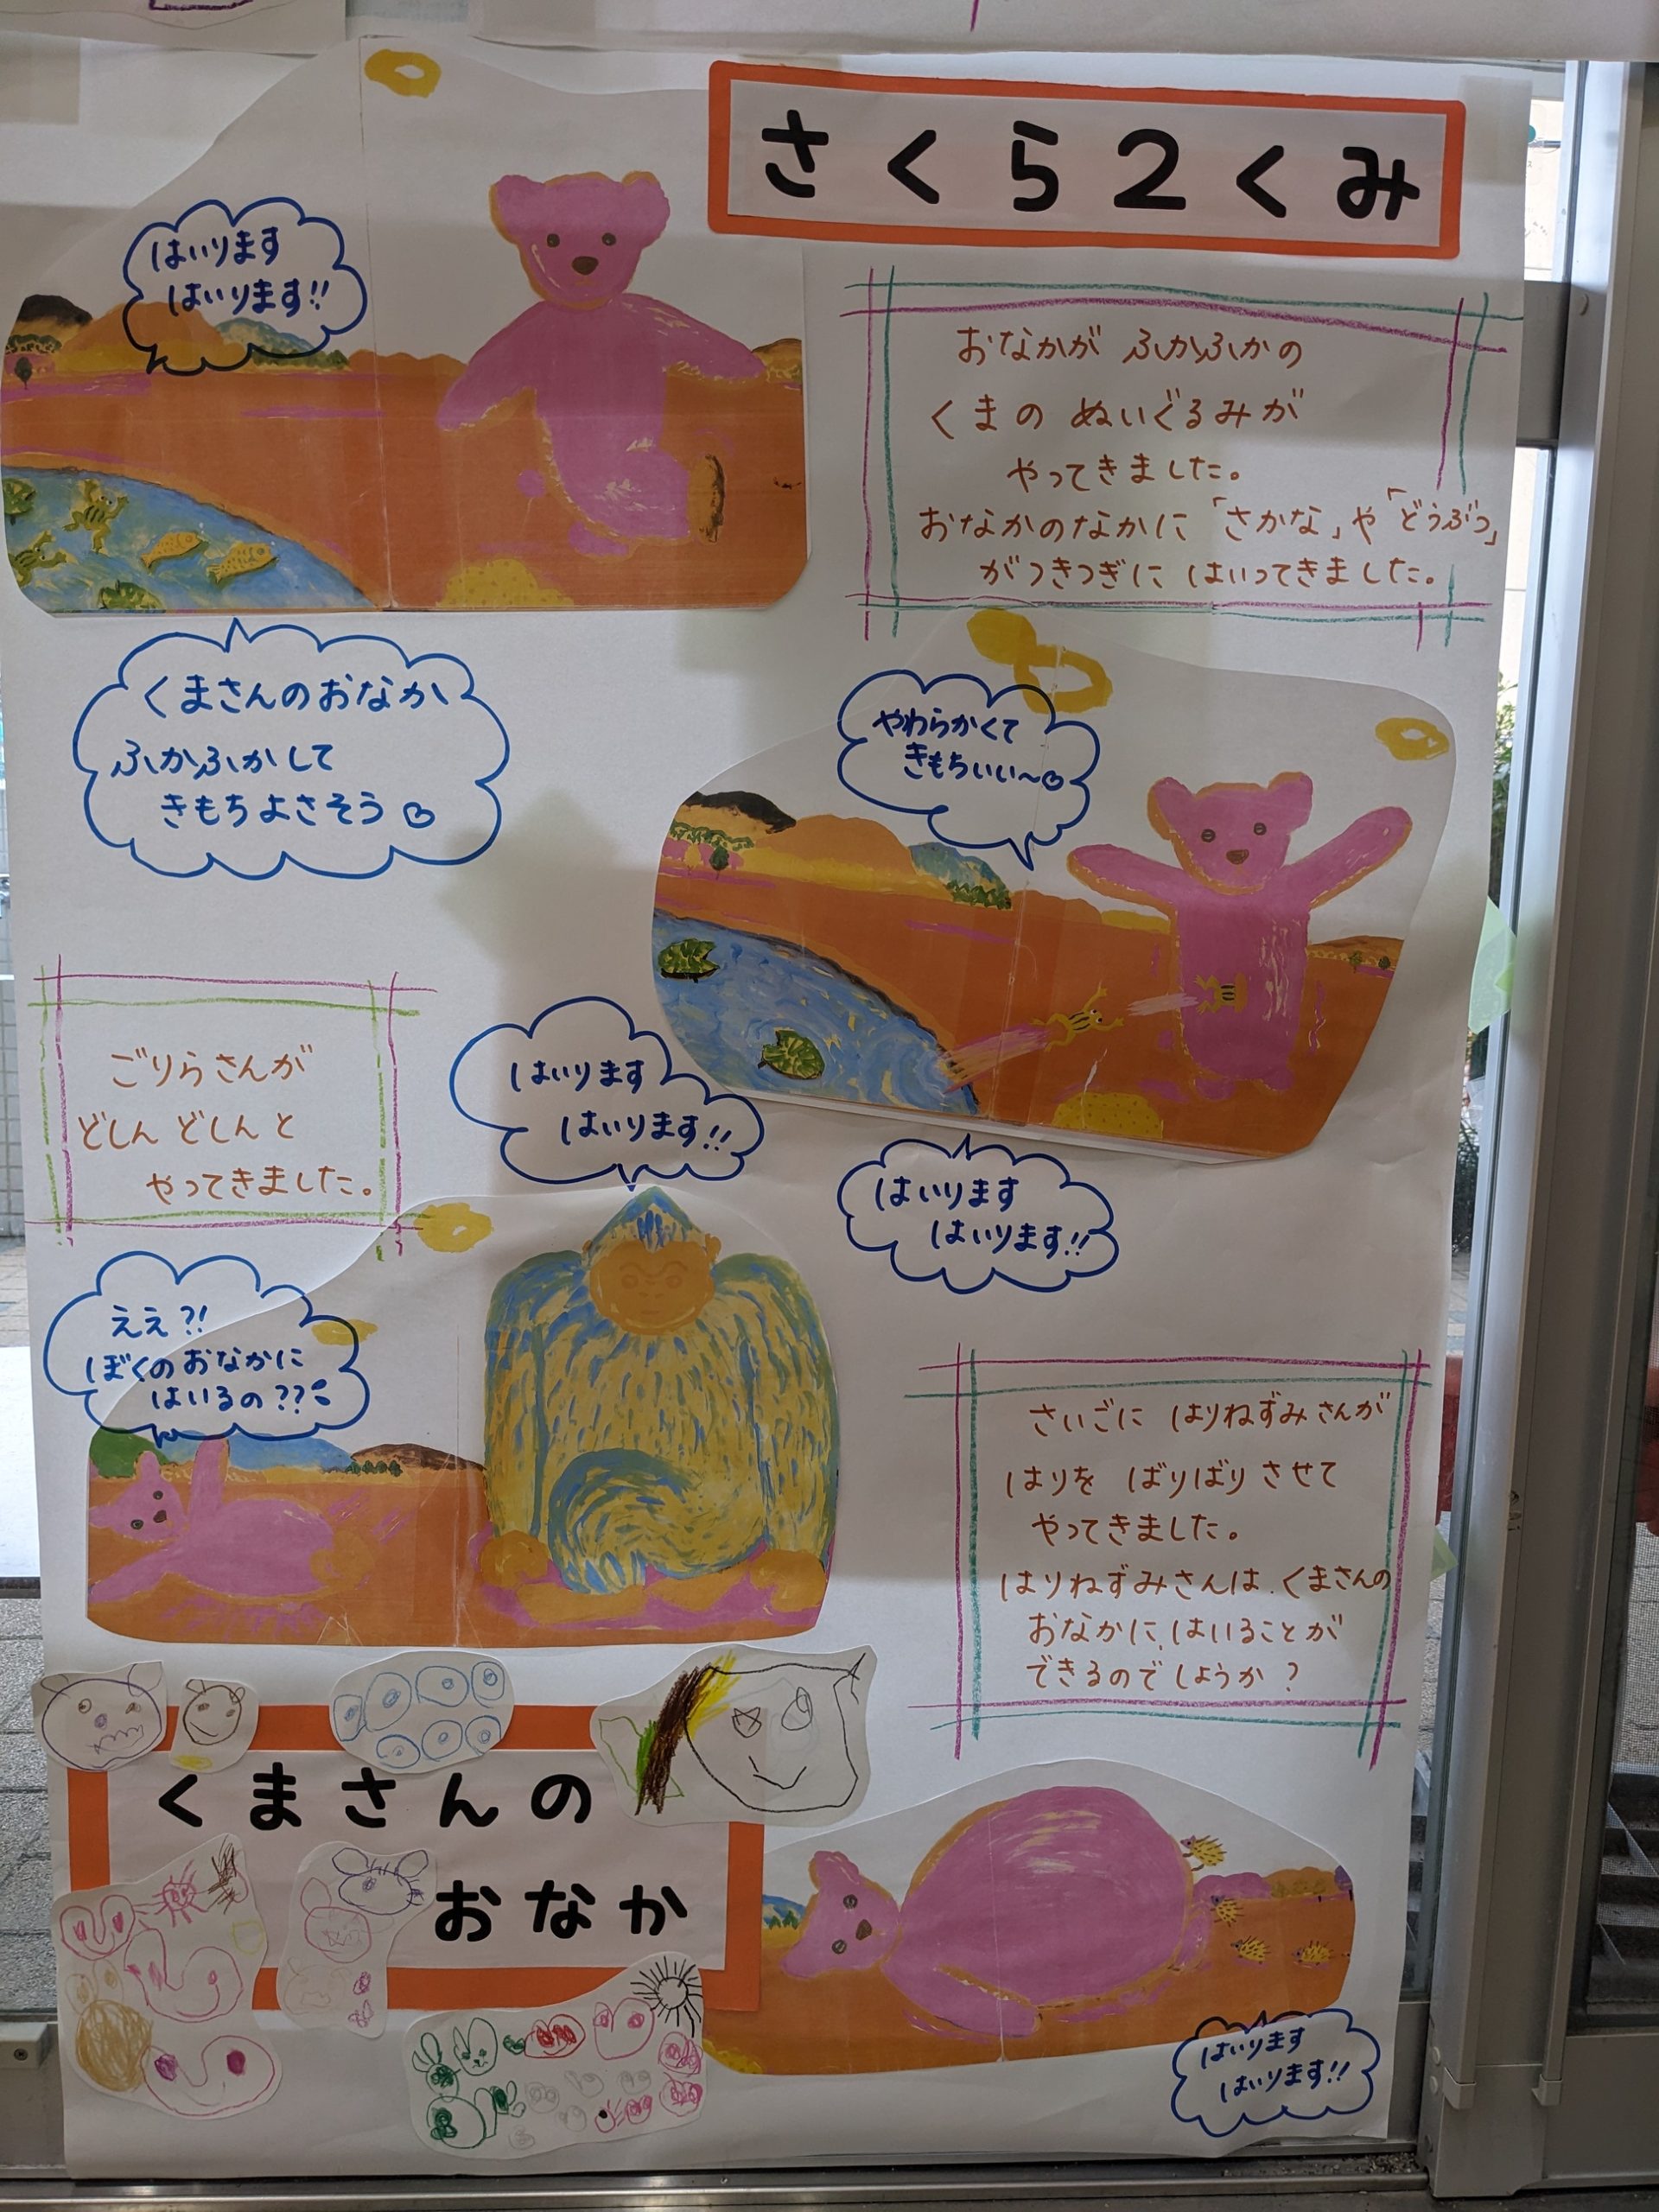 さくら2くみ
はいります
はいります!!
おなかが ふかふかの
くまの ぬいぐるみが
やってきました。
おなかのなかに「さかな」や「どうぶつ」
がつきつぎに はいってきました。
くまさんのおなか
ふかふかして
きもちよさそう♡
やわらかくて
きもちいい〜♡
はいります
はいります!!
ごりらさんが
どしん どしんと
やってきました。
はいります
はいります!!
ええ?!
ぼくのおなかに
はいるの??
さいごに はりねずみさんが
はりを ばりばり させて
やってきました。
はりねずみさんは、くまさんの
おなかに、はいることが
できるのでしょうか?
くまさんの
おなか
はいります
はいります!!